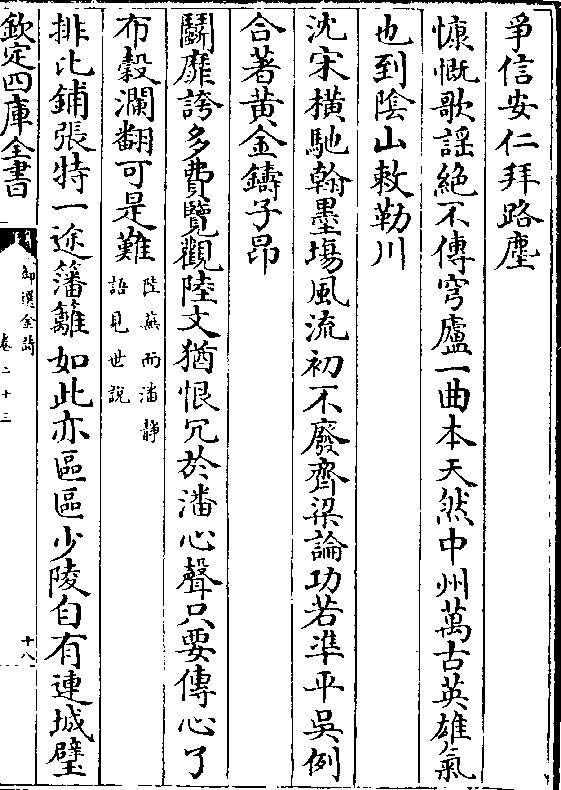 爭信安仁拜路塵
慷慨歌謡絕不傳穹廬一曲本天然中州萬古英雄氣
也到陰山敕勒川
沈宋橫馳翰墨場風流初不廢齊梁論功若準平吳例
合著黄金鑄子昂
鬭靡誇多費覽觀陸文猶恨冗於潘心聲只要傳心了
布糓瀾翻可是難陸蕪而潘靜
語見世說
排比鋪張特一途籓籬如此亦區區少陵自有連城璧
欽定四庫全書
御選金詩
卷二十三
十八